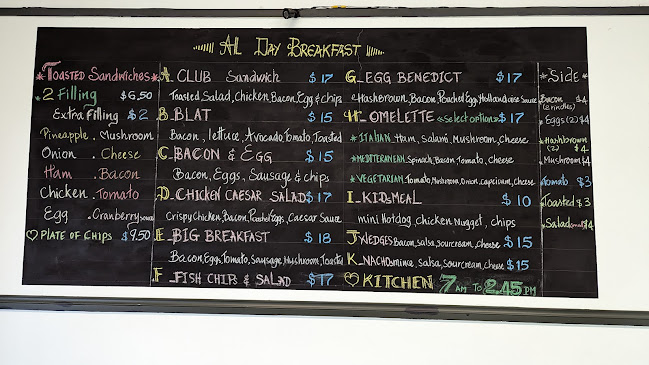 ALL DAY BREAKFAST
*TOASTED Sandwiches*
*2 Filling $6.50
Extra Filling $2
Pineapple . Mushroom
Onion . Cheese
Ham . Bacon
Chicken . Tomato
Egg . Cranberry sauce
♡ PLATE OF CHIPS $9.50
A_CLUB Sandwich $17
Toasted, Salad, Chicken, Bacon, Egg & chips
B_BLAT $15
Bacon, lettuce, Avocado, Tomato, Toasted
C_BACON & EGG $15
Bacon, Eggs, Sausage & chips
D_CHICKEN CAESAR SALAD $17
Crispy Chicken, Bacon, Poached Eggs, Caesar Sauce
E_BIG BREAKFAST $18
Bacon, Egg, Tomato, Sausage, Mushroom, Toasted
F_FISH CHIPS & SALAD $17
G_EGG BENEDICT $17
Hashbrown, Bacon, Poached Egg, Hollandaise Sauce
H_OMELETTE «select options» $17
*ITALIAN Ham, Salami, Mushroom, Cheese
*MEDITERENEAN Spinach, Bacon, Tomato, Cheese
*VEGETARIAN Tomato, Mushroom, Onion, Capcium, Cheese
I_KIDS MEAL $10
mini Hotdog, Chicken Nugget, chips
J_WEDGES Bacon, Salsa, sour cream, cheese $15
K_NACHO mince, Salsa, Sour cream, cheese $15
♡ KITCHEN 7 AM TO 2.45 PM
*Side*
Bacon $4
Eggs (2) $4
*Hashbrown
(2) $4
Mushroom $4
Tomato $3
Toasted $3
Salad $4